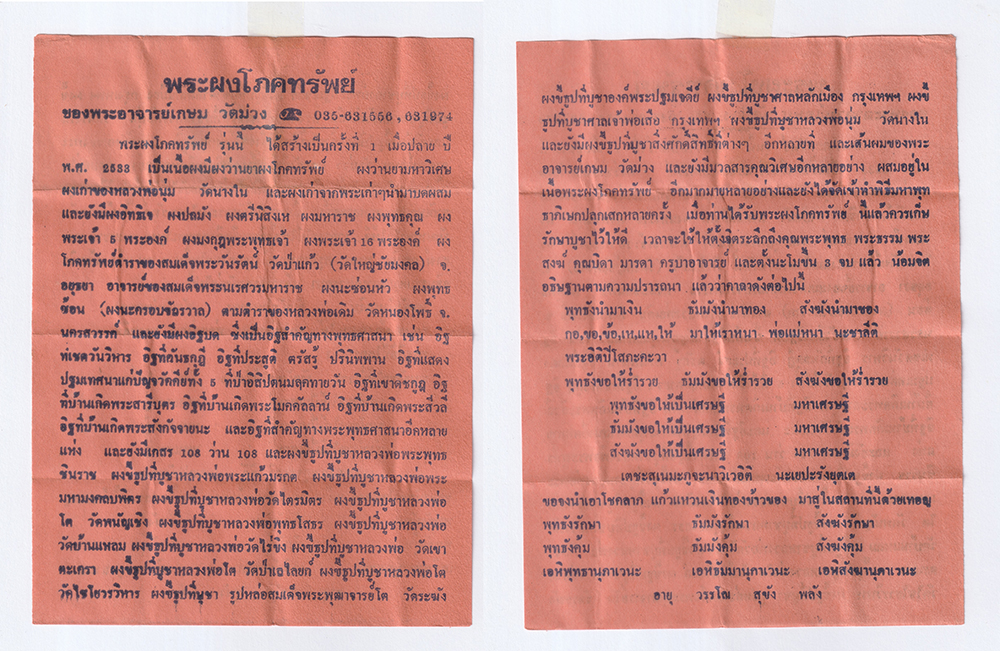 พระผงโภคทรัพย์
ของพระอาจารย์เกษม วัดม่วง 035-631556, 631974
พระผงโภคทรัพย์ รุ่นนี้ ได้สร้างเป็นครั้งที่ 1 เมื่อปลาย ปี
พ.ศ. 2533 เป็นเนื้อผงมีผงว่านยาผงโภคทรัพย์ ผงว่านยามหาวิเศษ
ผงเก่าของหลวงพ่อนุ่ม วัดนางใน และผงเก่าจากพระเก่าๆนำมาบดผสม
และยังมีผงอิทธิเจ ผงปถมัง ผงตรีนิสิงเห ผงมหาราช ผงพุทธคุณ ผง
พระเจ้า 5 พระองค์ ผงมงกุฎพระพุทธเจ้า ผงพระเจ้า 16 พระองค์ ผง
โภคทรัพย์ตำราของสมเด็จพระวันรัตน์ วัดป่าแก้ว (วัดใหญ่ชัยมงคล) จ.
อยุธยา อาจารย์ของสมเด็จพระนเรศวรมหาราช ผงนะซ่อนหัว ผงพุทธ
ซ้อน (ผงนะครอบจักรวาล) ตามตำราของหลวงพ่อเดิม วัดหนองโพธิ์ จ.
นครสวรรค์ และยังมีผงอิฐบด ซึ่งเป็นอิฐสำคัญทางพุทธศาสนา เช่น อิฐ
ที่เชตวันวิหาร อิฐที่คันธกุฎี อิฐที่ประสูติ ตรัสรู้ ปรินิพพาน อิฐที่แสดง
ปฐมเทศนาแก่ปัญจวัคคีย์ทั้ง 5 ที่ป่าอิสิปตนมฤคทายวัน อิฐที่เขาคิชกูฏ อิฐ
ที่บ้านเกิดพระสารีบุตร อิฐที่บ้านเกิดพระโมคคัลลาน์ อิฐที่บ้านเกิดพระสีวลี
อิฐที่บ้านเกิดพระสังกัจจายนะ และอิฐที่สำคัญทางพระพุทธศาสนาอีกหลาย
แห่ง และยังมีเกสร 108 ว่าน 108 และผงขี้ธูปที่บูชาหลวงพ่อพระพุทธ
ชินราช ผงขี้ธูปที่บูชาหลวงพ่อพระแก้วมรกต ผงขี้ธูปที่บูชาหลวงพ่อพระ
มหามงคลบพิตร ผงขี้ธูปที่บูชาหลวงพ่อวัดไตรมิตร ผงขี้ธูปที่บูชาหลวงพ่อ
โต วัดพนัญเชิง ผงขี้ธูปที่บูชาหลวงพ่อพุทธโสธร ผงขี้ธูปที่บูชาหลวงพ่อ
วัดบ้านแหลม ผงขี้ธูปที่บูชาหลวงพ่อวัดไร่ขิง ผงขี้ธูปที่บูชาหลวงพ่อ วัดเขา
ตะเครา ผงขี้ธูปที่บูชาหลวงพ่อโต วัดป่าเลไลยก์ ผงขี้ธูปที่บูชาหลวงพ่อโต
วัดไชโยวรวิหาร ผงขี้ธูปที่บูชา รูปหล่อสมเด็จพระพุฒาจารย์โต วัดระฆัง
ผงขี้ธูปที่บูชาองค์พระปฐมเจดีย์ ผงขี้ธูปที่บูชาศาลหลักเมือง กรุงเทพฯ ผงขี้
ธูปที่บูชาศาลเจ้าพ่อเสือ กรุงเทพฯ ผงขี้ธูปที่บูชาหลวงพ่อนุ่ม วัดนางใน
และยังมีผงขี้ธูปที่บูชาสิ่งศักดิ์สิทธิ์ที่ต่างๆ อีกหลายที่ และเส้นผมของพระ
อาจารย์เกษม วัดม่วง และยังมีมวลสารคุณวิเศษอีกหลายอย่าง ผสมอยู่ใน
เนื้อพระผงโภคทรัพย์ อีกมากมายหลายอย่างและยังได้จัดเข้าทำพิธีมหาพุท
ธาภิเษกปลุกเสกหลายครั้ง เมื่อท่านได้รับพระผงโภคทรัพย์ นี้แล้วควรเก็บ
รักษาบูชาไว้ให้ดี เวลาจะใช้ให้ตั้งจิตระลึกถึงคุณพระพุทธ พระธรรม พระ
สงฆ์ คุณบิดา มารดา ครูบาอาจารย์ และตั้งนะโมขึ้น 3 จบ แล้ว น้อมจิต
อธิษฐานตามความปรารถนา แล้วว่าคาถาดังต่อไปนี้
พุทธังนำมาเงิน ธัมมังนำมาทอง สังฆังนำมาของ
กอ,ขอ,ข้อ,เห,แห,ให้ มาให้เราหนา พ่อแม่หนา นะชาลีติ
พระอิติปิโสภะคะวา
พุทธังขอให้ร่ำรวย ธัมมังขอให้ร่ำรวย สังฆังขอให้ร่ำรวย
พุทธังขอให้เป็นเศรษฐี มหาเศรษฐี
ธัมมังขอให้เป็นเศรษฐี มหาเศรษฐี
สังฆังขอให้เป็นเศรษฐี มหาเศรษฐี
เตชะสุเนมะภูจะนาวิเวอิติ นะเยปะรังยุตเต
ขอจงนำเอาโชคลาภ แก้วแหวนเงินทองข้าวของ มาสู่ในสถานที่นี้ด้วยเทอญ
พุทธังรักษา ธัมมังรักษา สังฆังรักษา
พุทธังคุ้ม ธัมมังคุ้ม สังฆังคุ้ม
เอหิพุทธานุภาเวนะ เอหิธัมมานุภาเวนะ เอหิสังฆานุภาเวนะ
อายุ วรรโณ สุขัง พลัง